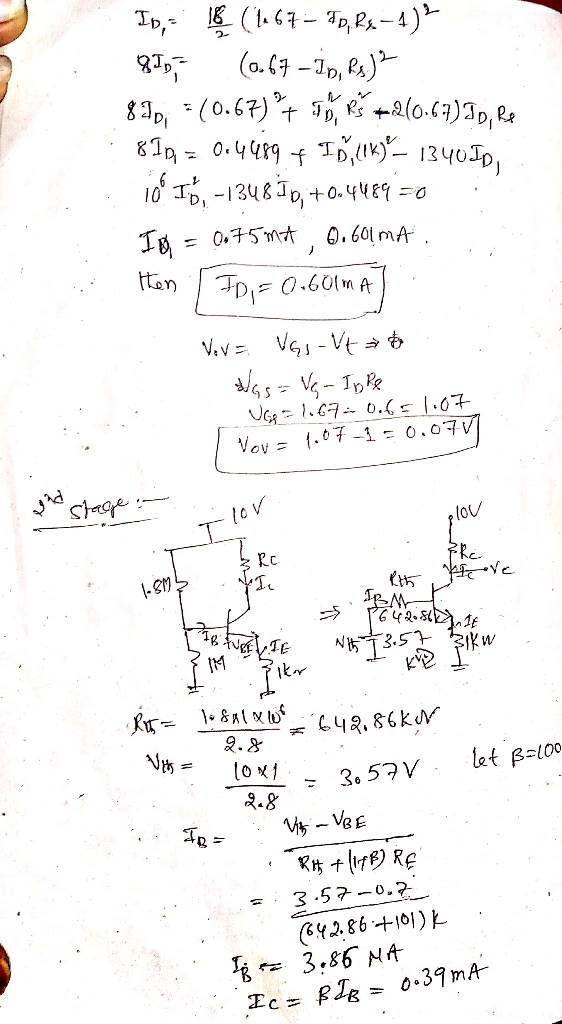 I_D₁ = 18/2 (1.67 - I_D₁ R_s - 1)²
8I_D₁ = (0.67 - I_D₁ R_s)²
8I_D₁ = (0.67)² + I_D₁² R_s² - 2(0.67) I_D₁ R_s
8I_D₁ = 0.4489 + I_D₁² (1K)² - 1340 I_D₁
10⁶ I_D₁² - 1348 I_D₁ + 0.4489 = 0
I_D₁ = 0.75mA , 0.601mA .
then I_D₁ = 0.601mA
VoV = V_GS - V_t ⇒
V_GS = V_G - I_D R_s
V_GS = 1.67 - 0.6 = 1.07
Vov = 1.07 - 1 = 0.07V
2nd Stage :-
10V
10V
RC
Rc
1.8M
Ic
Rth
Ic
Vc
IB
⇒
642.86k
IE
IB
VBE
IE
Vth
3.57
1K
KVL
1M
1k
Rth = 1.8×1×10⁶ / 2.8 = 642.86K
Vth = 10×1 / 2.8 = 3.57V
let β=100
I_B = Vth - V_BE / Rth + (1+β) R_E
= 3.57 - 0.7 / (642.86 + 101) K
I_B = 3.86 μA
I_C = βI_B = 0.39mA